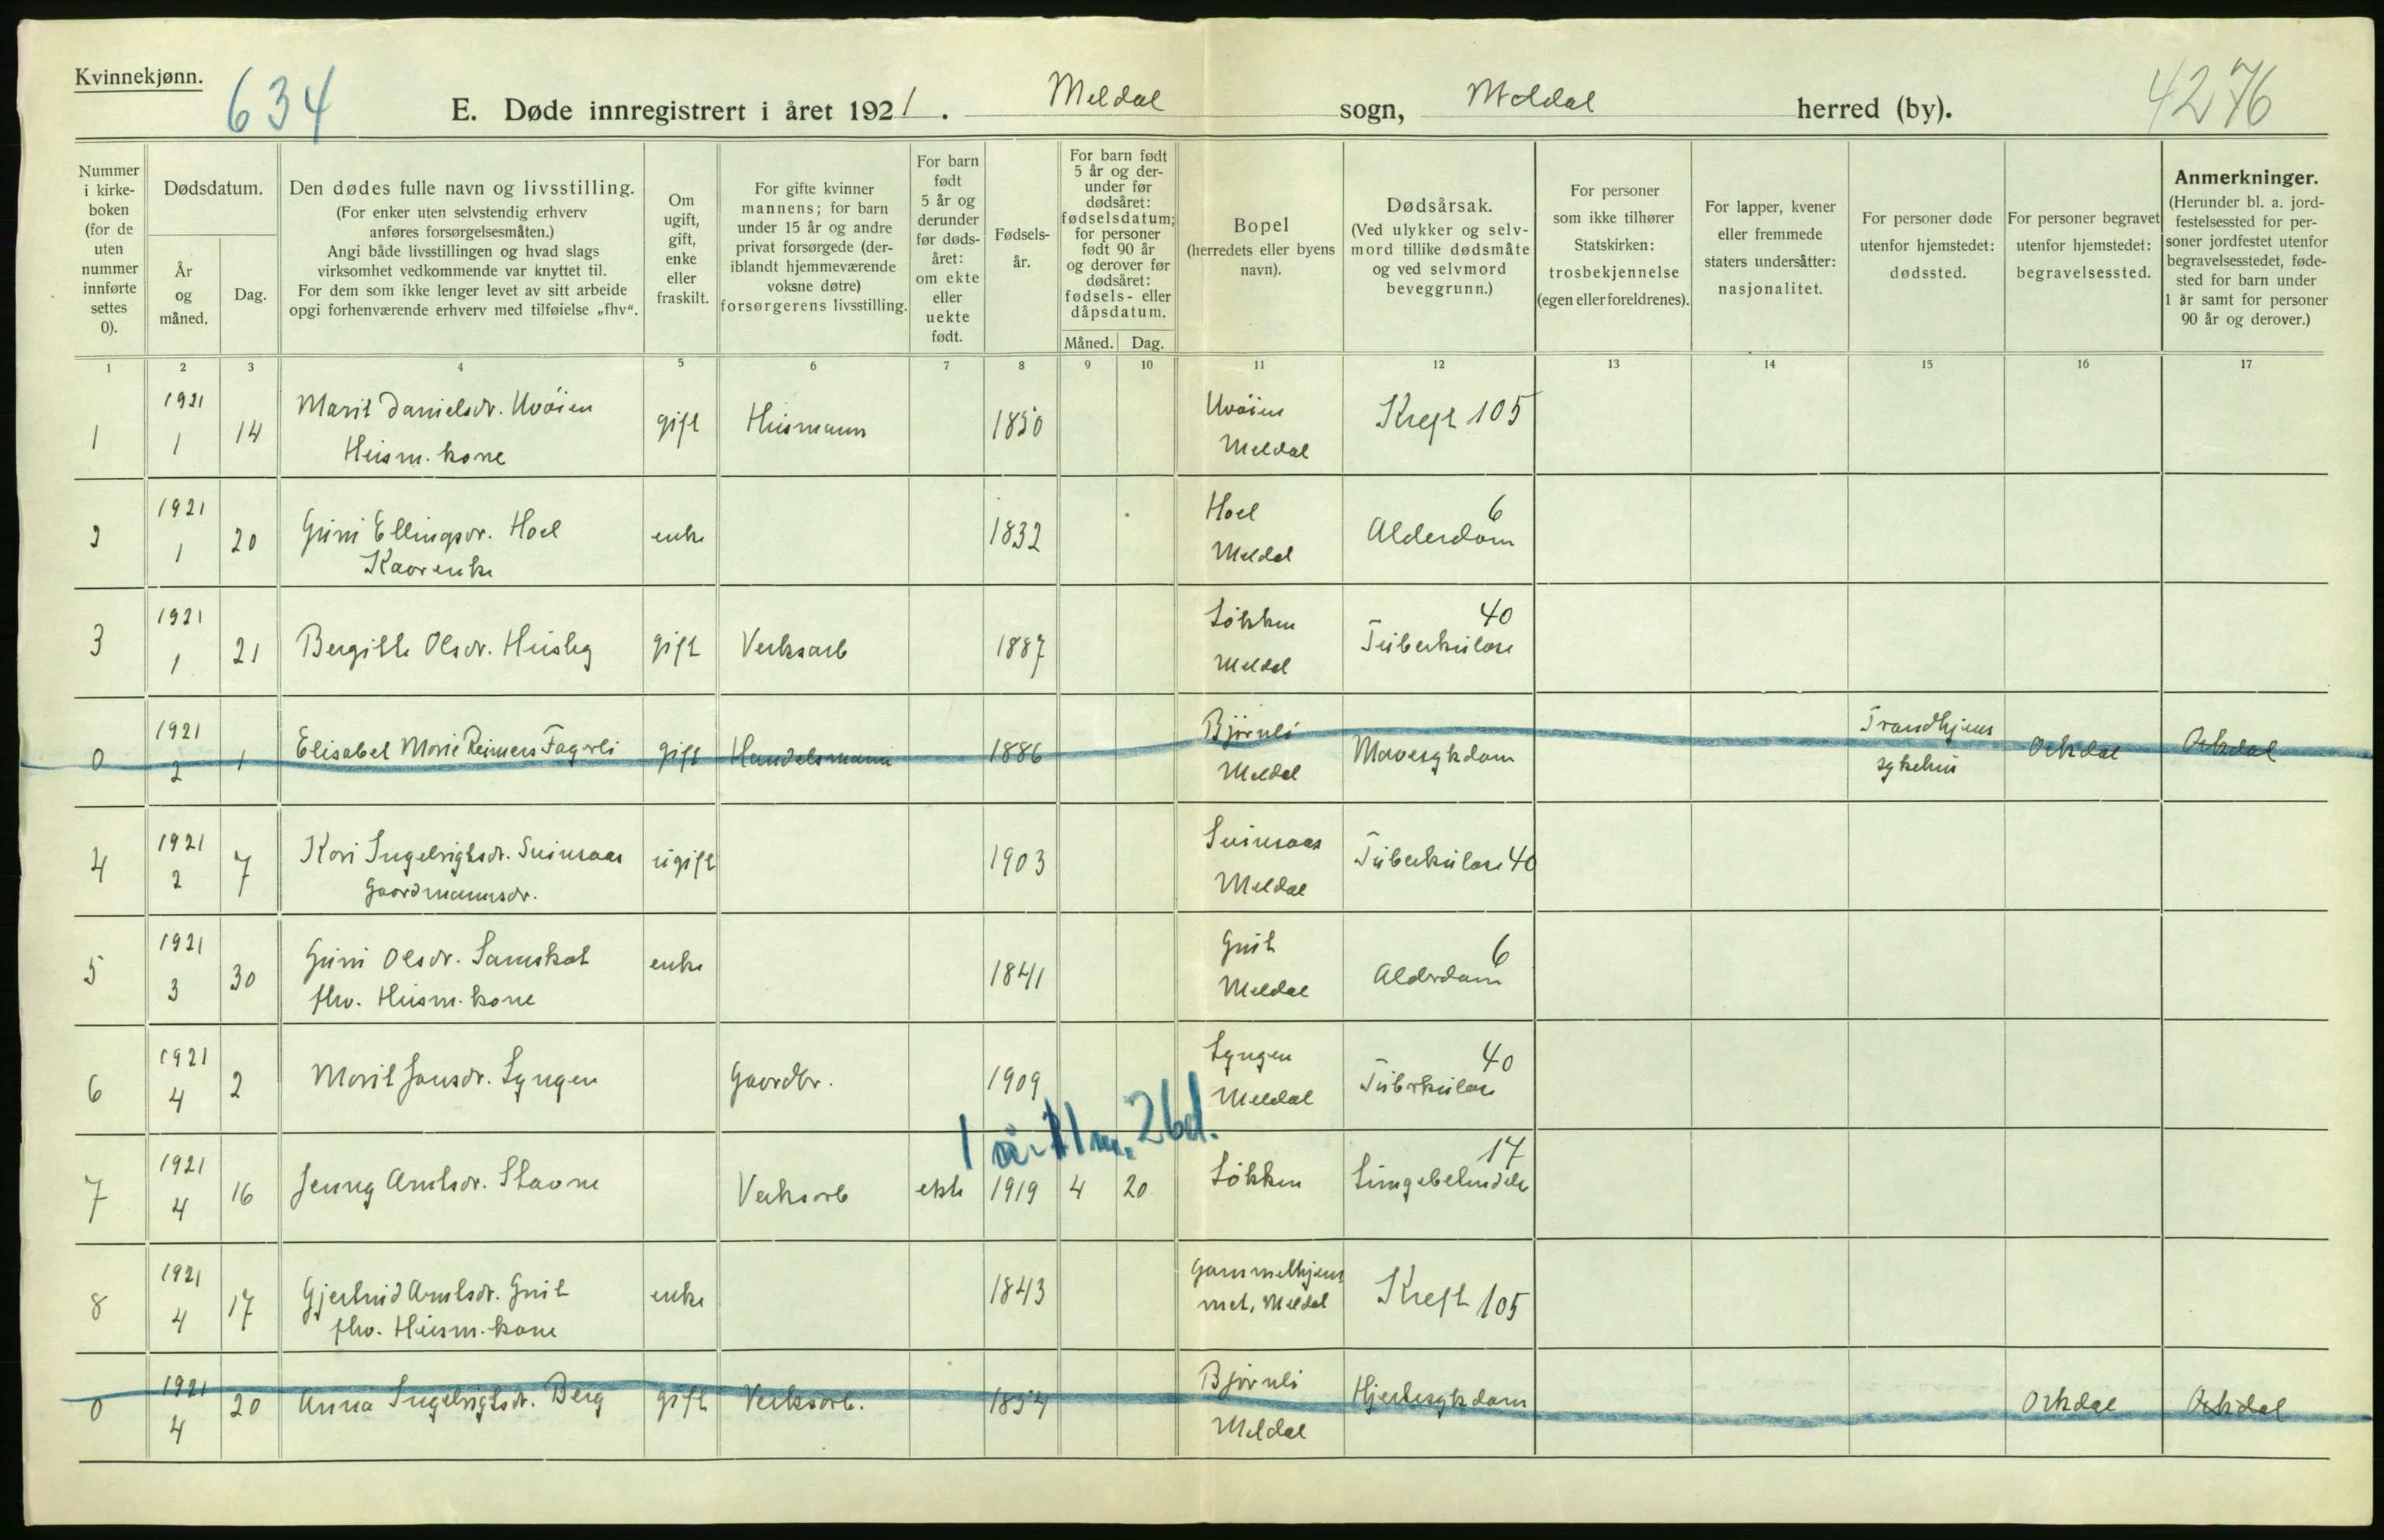 Kvinnekjønn.
634
E. Døde innregistrert i året 1921. Meldal sogn, Meldal herred (by).
4276
Nummer i kirkeboken (for de uten nummer innførte settes 0).
Dødsdatum.
År og måned.
Dag.
Den dødes fulle navn og livsstilling.
(For enker uten selvstendig erhverv
anføres forsørgelsesmåten.)
Angi både livsstillingen og hvad slags
virksomhet vedkommende var knyttet til.
For dem som ikke lenger levet av sitt arbeide
opgi forhenværende erhverv med tilføielse „fhv“.
Om ugift, gift, enke eller fraskilt.
For gifte kvinner
mannens; for barn
under 15 år og andre
privat forsørgede (der-
iblandt hjemmeværende
voksne døtre)
forsørgerens livsstilling.
For barn
født
5 år og
derunder
før døds-
året:
om ekte
eller
uekte
født.
Fødsels-
år.
For barn født
5 år og der-
under før
dødsåret:
fødselsdatum;
for personer
født 90 år
og derover før
dødsåret:
fødsels- eller
dåpsdatum.
Måned. Dag.
Bopel
(herredets eller byens
navn).
Dødsårsak.
(Ved ulykker og selv-
mord tillike dødsmåte
og ved selvmord
beveggrunn.)
For personer
som ikke tilhører
Statskirken:
trosbekjennelse
(egen eller foreldrenes).
For lapper, kvener
eller fremmede
staters undersåtter:
nasjonalitet.
For personer døde
utenfor hjemstedet:
dødssted.
For personer begravet
utenfor hjemstedet:
begravelsessted.
Anmerkninger.
(Herunder bl. a. jord-
festelsessted for per-
soner jordfestet utenfor
begravelsesstedet, føde-
sted for barn under
1 år samt for personer
90 år og derover.)
1 2 3 4 5 6 7 8 9 10 11 12 13 14 15 16 17
1 1921 1 14 Marit Danielsdr. Uvåien Husm. kone gift Husmann 1850 Uvåien Meldal Kreft 105
2 1921 1 20 Guni Ellingsdr. Hoel enke 1832 Hoel Meldal Alderdom 6
3 1921 1 21 Bergitte Olsdr. Husby gift Verksarb 1887 Løkken Meldal Tuberkulose 40
0 1921 2 1 Elisabet Marie Reimers Fagerli gift Handelsmann 1886 Bjørnli Meldal Mavesykdom Trondhjems sykehus Orkdal Orkdal
4 1921 2 7 Kari Ingebrigtsdr. Gaardmannsdr. ugift 1903 Meldal Tuberkulose 40
5 1921 3 30 Guni Olsdr. Lamskot fhv. Husm. kone enke 1841 Grut Meldal Alderdom 6
6 1921 4 2 Marit Jonsdr. Lyngen Gaardbr. 1909 Lyngen Meldal Tuberkulose 40
1 år 11 m. 26 d.
7 1921 4 16 Jenny Arntsdr. Stavne Verksarb ekte 1919 4 20 Løkken Lungebetendelse 17
8 1921 4 17 Gjertrud Arntsdr. Grut fhv. Husm. kone enke 1843 Gammelhjemmet, Meldal Kreft 105
0 1921 4 20 Anna Ingebrigtsdr. Berg gift Verksarb. 1854 Bjørnli Meldal Hjertesykdom Orkdal Orkdal